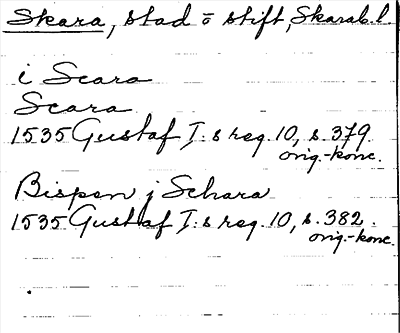 Skara, stad o stift, Skarab.l
i Scara
Scara
1535 Gustaf I:s reg. 10, s. 379.
orig.-konc.
Bispen j Schara
1535 Gustaf I:s reg. 10, s. 382.
orig.-konc.